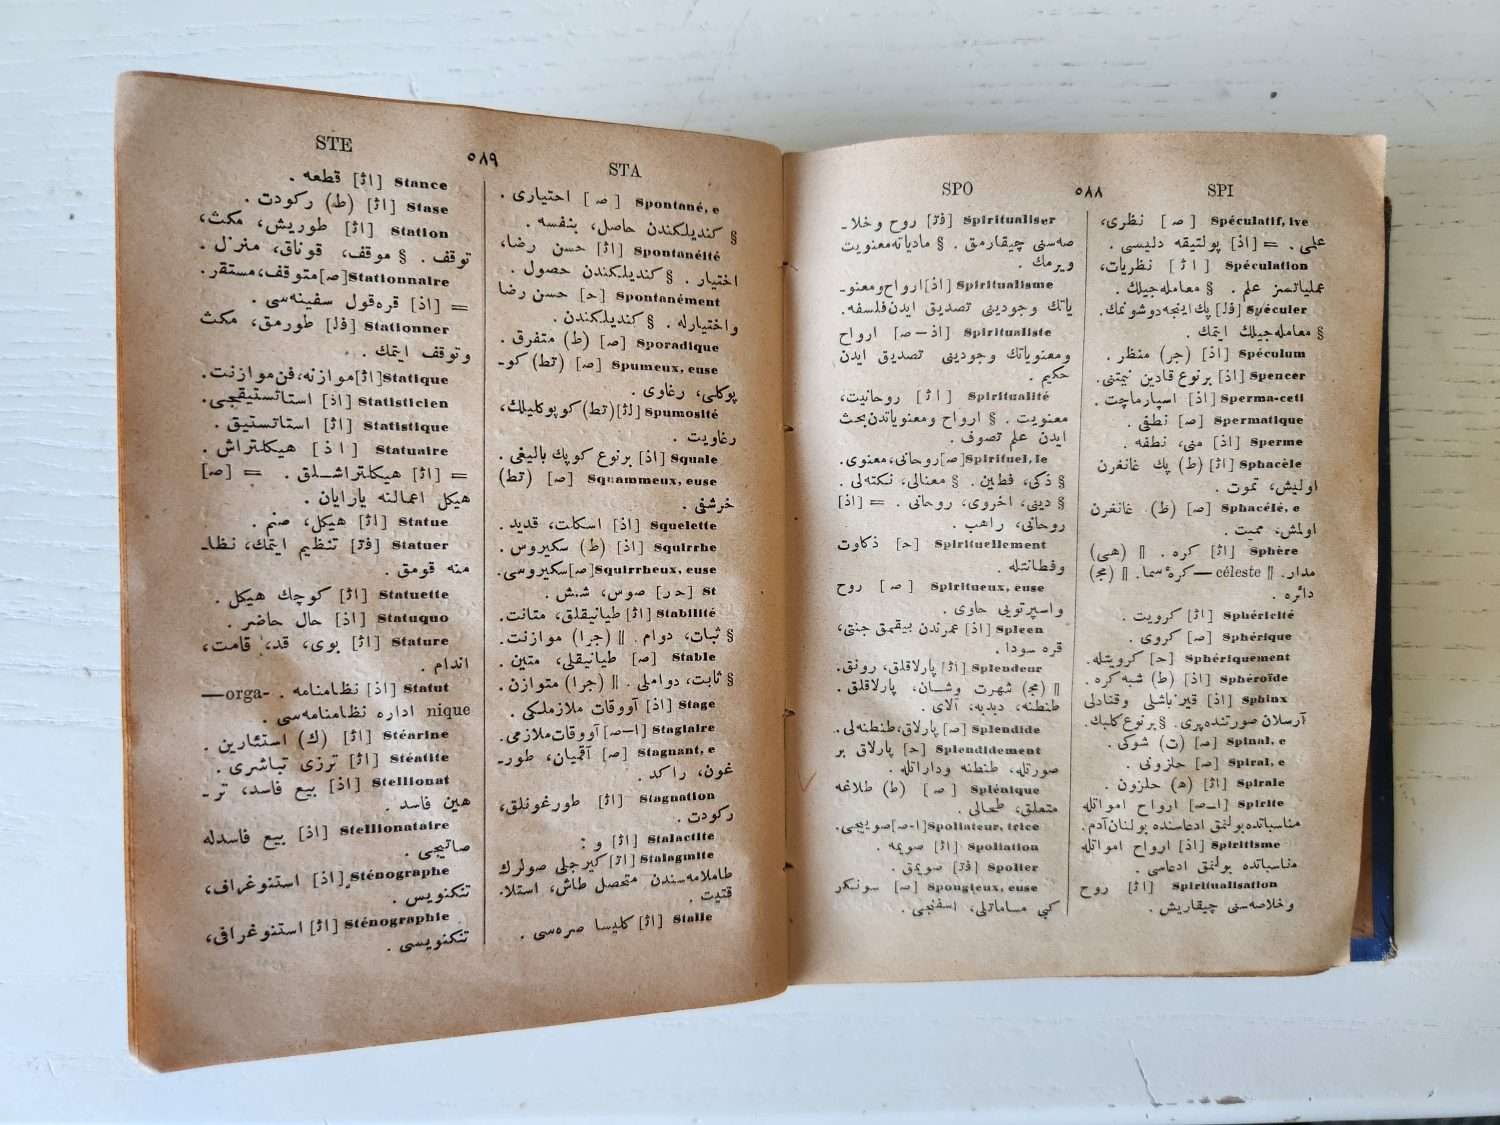 SPI
٥٨٨
SPO
Spéculatif, ive [ص] نظری،
علمی. = [اذ] پولتیقه دلیسی.
Spéculation [اث] نظریات،
عملیاتسز علم. § معامله‌جیلك.
Spéculer [فل] پك اینجه دوشونمك.
§ معامله‌جیلك ایتمك.
Spéculum [اذ] (جر) منظر.
Spencer [اذ] برنوع قادین نیمتنی.
Sperma-ceti [اذ] اسپارماچت.
Spermatique [ص] نطفی.
Sperme [اذ] منی، نطفه.
Sphacèle [اث] (ط) پك غانغرن
اولیش، تموت.
Sphacélé, e [ص] (ط) غانغرن
اولمش، ممیت.
Sphère [اث] كره. ‖ (هی)
مدار. ‖ céleste — كرهٔ سما. ‖ (مج)
دائره.
Sphéricité [اث] كرویت.
Sphérique [ص] كروی.
Sphériquement [ح] كرویتله.
Sphéroïde [اذ] (ط) شبه كره.
Sphinx [اذ] قیز باشلی وقنادلی
آرسلان صورتنده پری. § برنوع كلبك.
Spinal, e [ص] (ت) شوكی.
Spiral, e [ص] حلزونی.
Spirale [اث] (ه) حلزون.
Spirite [ا-ص] ارواح امواتله
مناسباتده بولنمق ادعاسنده بولنان آدم.
Spiritisme [اذ] ارواح امواتله
مناسباتده بولنمق ادعاسی.
Spiritualisation [اث] روح
وخلاصه‌سنی چیقاریش.
Spiritualiser [فت] روح وخلا-
صه‌سنی چیقارمق. § مادیاته معنویت
ویرمك.
Spiritualisme [اذ] ارواح ومعنو-
یاتك وجودینی تصدیق ایدن فلسفه.
Spiritualiste [اذ-ص] ارواح
ومعنویاتك وجودینی تصدیق ایدن
حكیم.
Spiritualité [اث] روحانیت،
معنویت. § ارواح ومعنویاتدن بحث
ایدن علم تصوف.
Spirituel, le [ص] روحانی، معنوی.
§ ذكی، فطین. § معنالی، نكته‌لی.
§ دینی، اخروی، روحانی. = [اذ]
روحانی، راهب.
Spirituellement [ح] ذكاوت
وفطانتله.
Spiritueux, euse [ص] روح
واسپرتویی حاوی.
Spleen [اذ] عمرندن بیقمق جنتی،
قره سودا.
Splendeur [اث] پارلاقلق، رونق.
‖ (مج) شهرت وشان، پارلاقلق.
طنطنه، دبدبه، آلای.
Splendide [ص] پارلاق، طنطنه‌لی.
Splendidement [ح] پارلاق بر
صورتله، طنطنه وداراتله.
Splénique [ص] (ط) طلاغه
متعلق، طحالی.
Spoliateur, trice [ا-ص] صوییجی.
Spoliation [اث] صویمه.
Spolier [فت] صویمق.
Spongieux, euse [ص] سونكر
كبی مساماتلی، اسفنجی.
STA
٥٨٩
STE
Spontané, e [ص] اختیاری.
§ كندیلكندن حاصل، بنفسه.
Spontanéité [اث] حسن رضا،
اختیار. § كندیلكندن حصول.
Spontanément [ح] حسن رضا
واختیارله. § كندیلكندن.
Sporadique [ص] (ط) متفرق.
Spumeux, euse [ص] (تط) كو-
پوكلی، رغاوی.
Spumosité [اث] (تط) كوپوكلیلك،
رغاویت.
Squale [اذ] برنوع كوپك بالیغی.
Squammeux, euse [ص] (تط)
خرشفی.
Squelette [اذ] اسكلت، قدید.
Squirrhe [اذ] (ط) سكیروس.
Squirrheux, euse [ص] سكیروسی.
St [حر] صوس، شش.
Stabilité [اث] طیانیقلق، متانت.
§ ثبات، دوام. ‖ (جرا) موازنت.
Stable [ص] طیانیقلی، متین.
§ ثابت، دواملی. ‖ (جرا) متوازن.
Stage [اذ] آووقات ملازملكی.
Stagiaire [ا-ص] آووقات ملازمی.
Stagnant, e [ص] آقمیان، طور-
غون، راكد.
Stagnation [اث] طورغونلق،
ركودت.
Stalactite [اث] و:
Stalagmite [اث] كیرجلی صولرك
طاملامه‌سندن متحصل طاش، استلا.
قتیت.
Stalle [اث] كلیسا صره‌سی.
Stance [اث] قطعه.
Stase [اث] (ط) ركودت.
Station [اث] طوریش، مكث،
توقف. § موقف، قوناق، منزل.
Stationnaire [ص] متوقف، مستقر.
= [اذ] قره‌قول سفینه‌سی.
Stationner [فل] طورمق، مكث
وتوقف ایتمك.
Statique [اث] موازنه، فن موازنت.
Statisticien [اذ] استاتستیقجی.
Statistique [اث] استاتستیق.
Statuaire [اذ] هیكلتراش.
= [اث] هیكلتراشلق. = [ص]
هیكل اعمالنه یارایان.
Statue [اث] هیكل، صنم.
Statuer [فت] تنظیم ایتمك، نظا-
منه قومق.
Statuette [اث] كوچك هیكل.
Statuquo [اذ] حال حاضر.
Stature [اث] بوی، قد، قامت،
اندام.
Statut [اذ] نظامنامه. —orga-
nique اداره نظامنامه‌سی.
Stéarine [اث] (ك) استئارین.
Stéatite [اث] ترزی تباشری.
Stellionat [اذ] بیع فاسد، تر-
هین فاسد.
Stellionataire [اذ] بیع فاسدله
صاتیجی.
Sténographe [اذ] استنوغراف،
تنكنویس.
Sténographie [اث] استنوغرافی،
تنكنویسی.